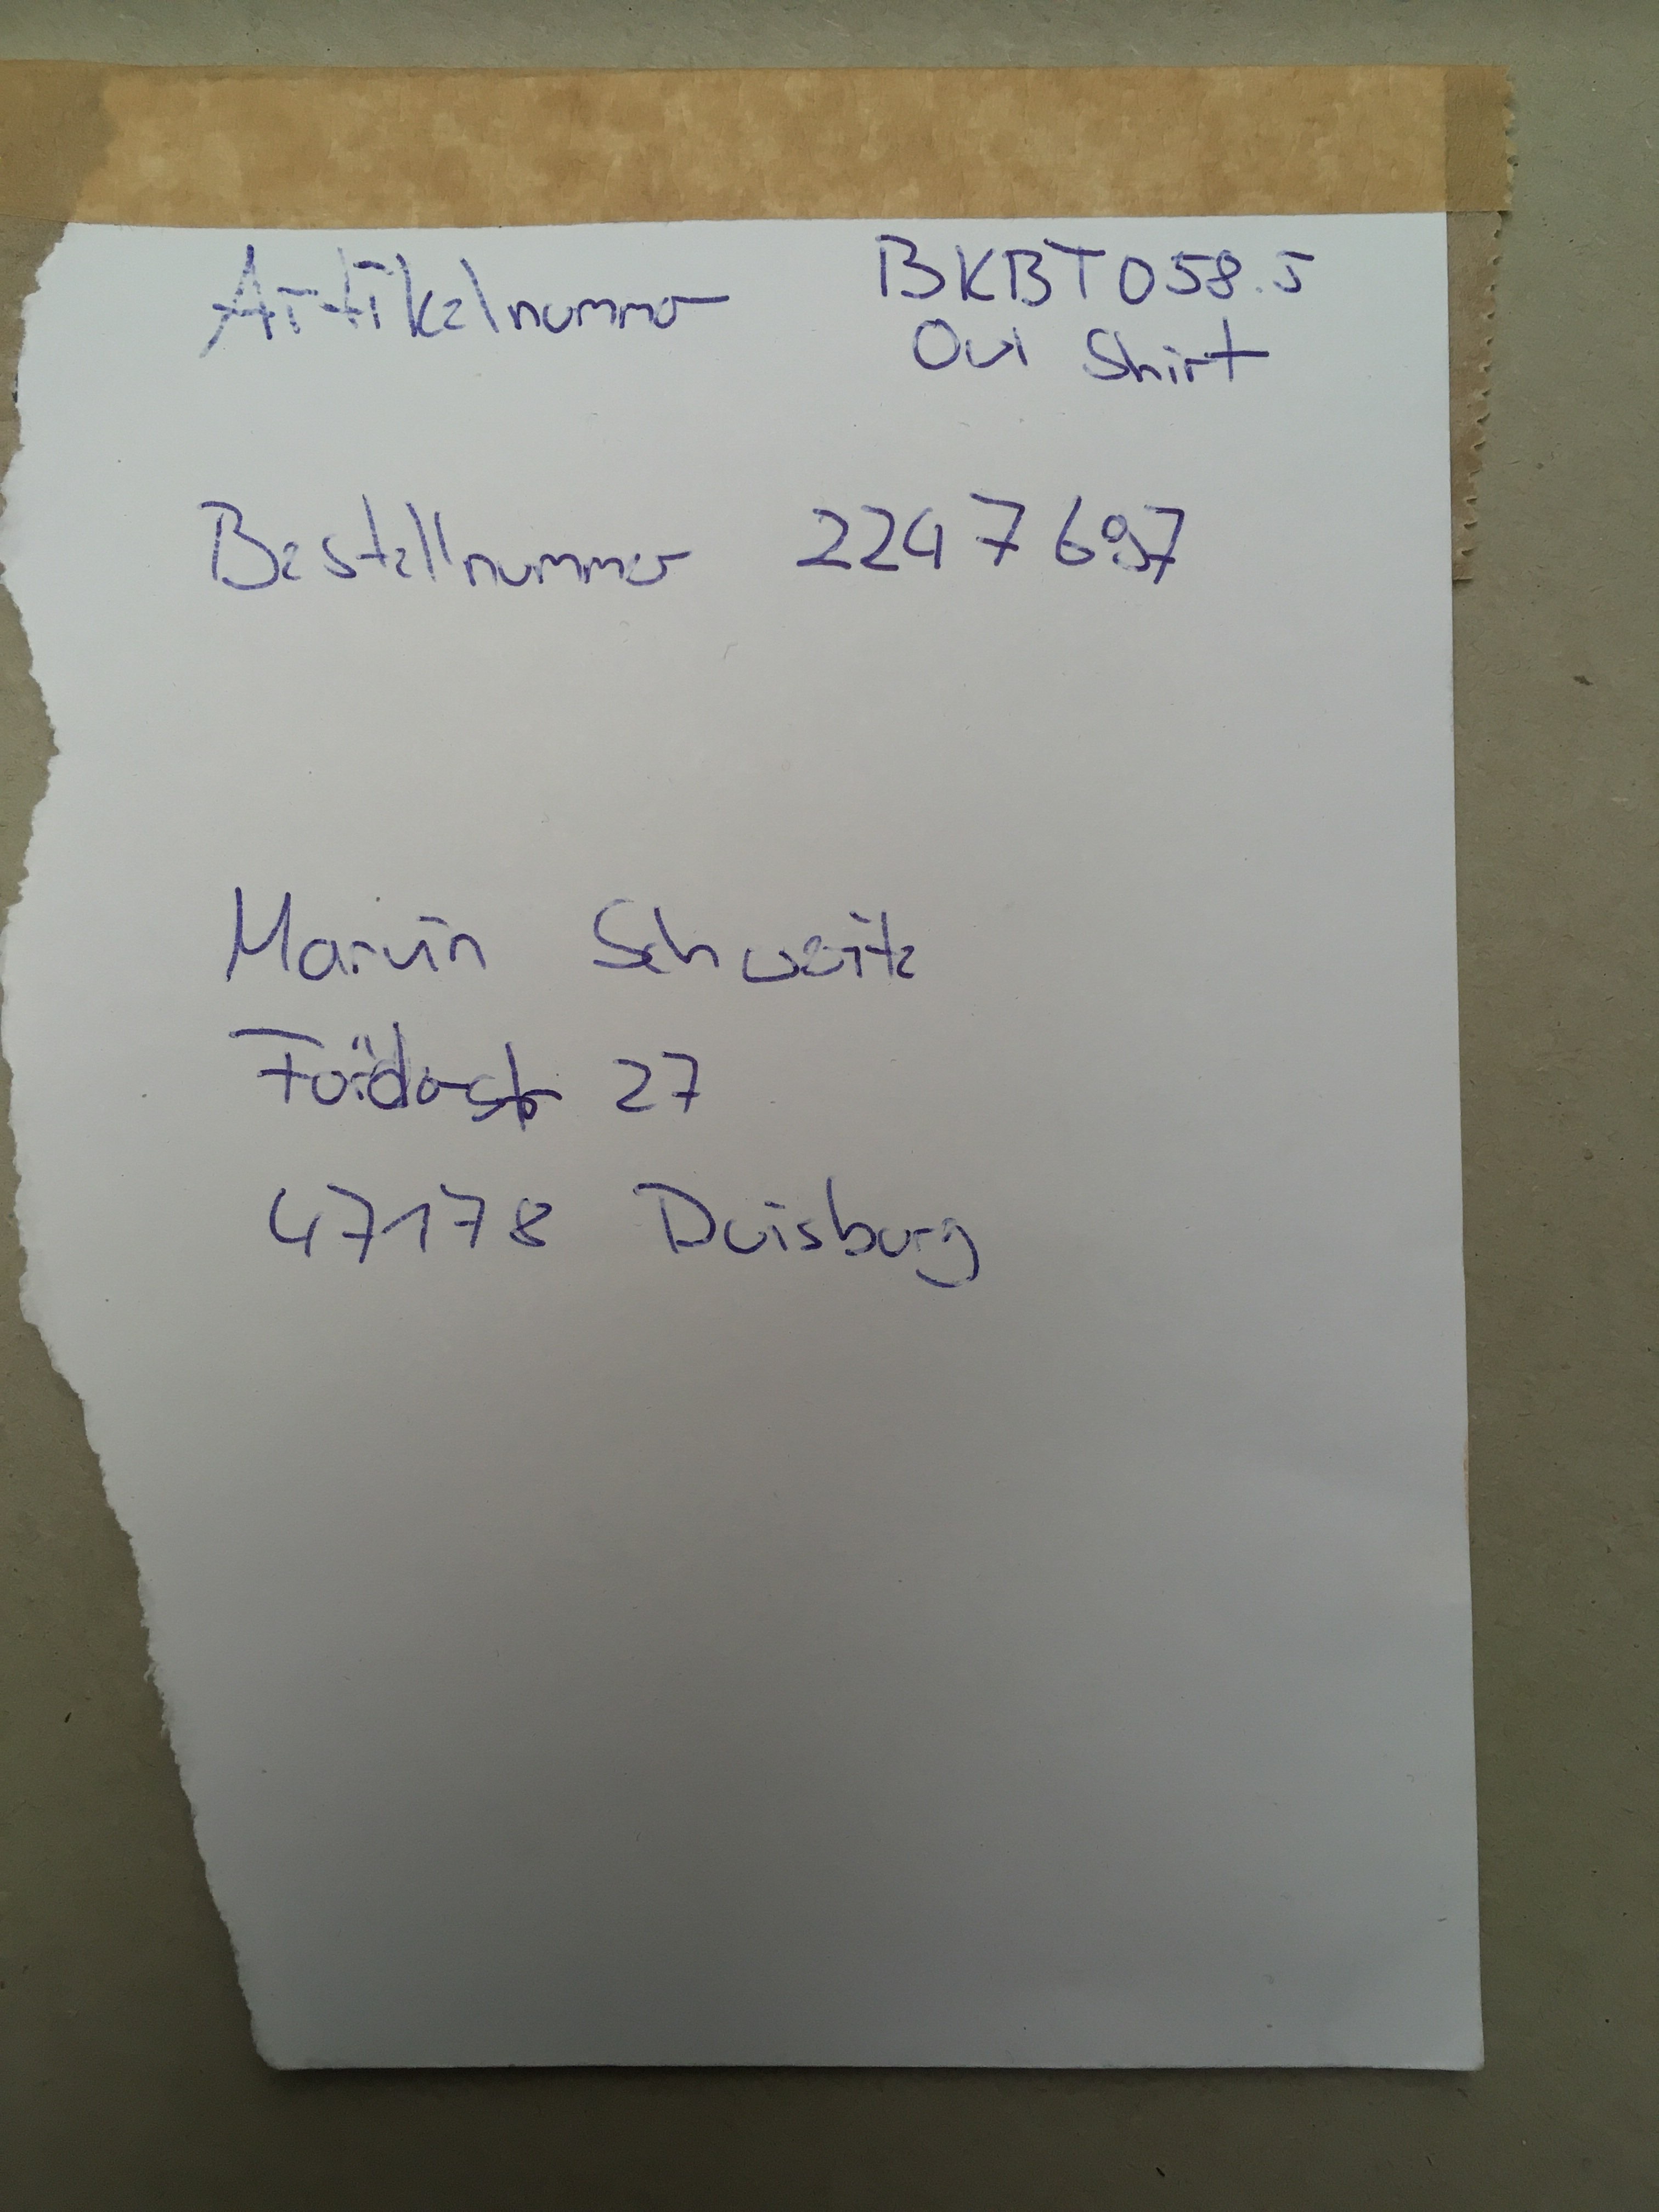 Artikelnummer BKBT058.5
Oui Shirt
Bestellnummer 2247697
Marvin Schweitz
27
47178 Duisburg